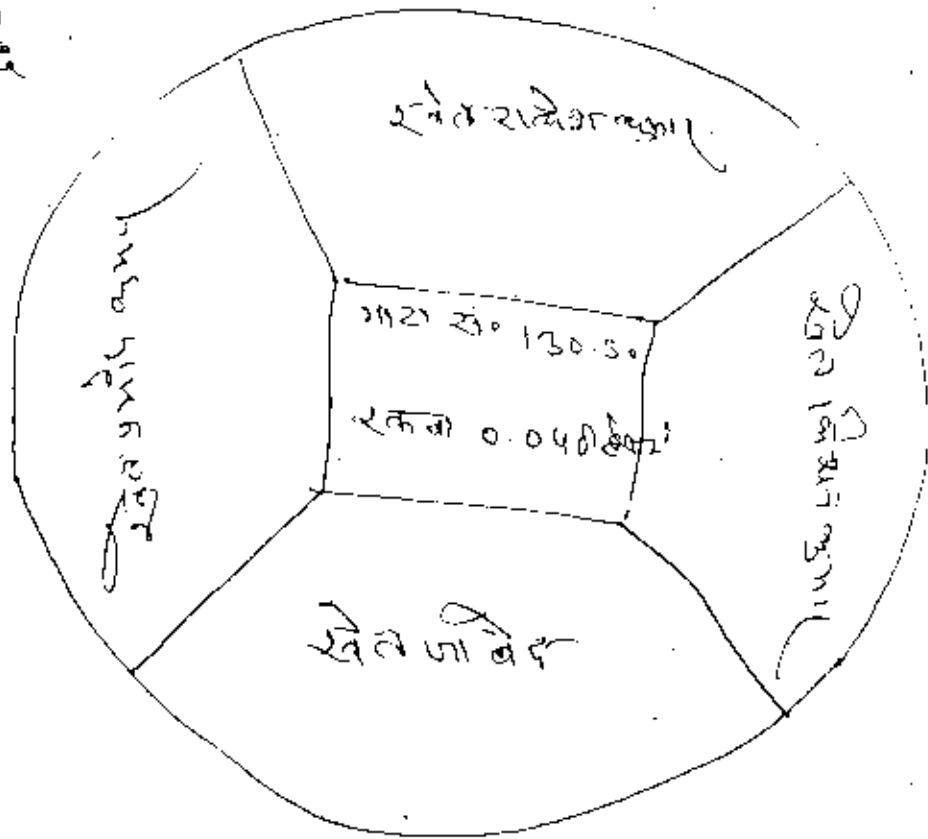 खेत राकेश कुमार
खेत प्रमोद कुमार
गाटा सं० 130.
रकबा 0.04 हे०
खेत कुमार
खेत जावेद